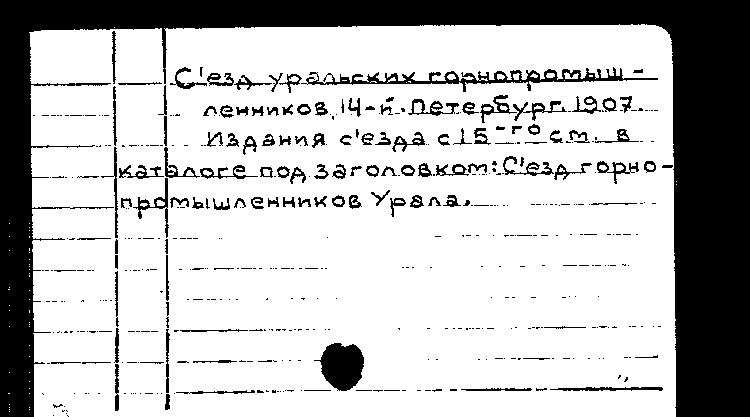 С'езд уральских горнопромыш-
ленников, 14-й. Петербург. 1907.
Издания с'езда с 15-го см. в
каталоге под заголовком: С'езд горно-
промышленников Урала.